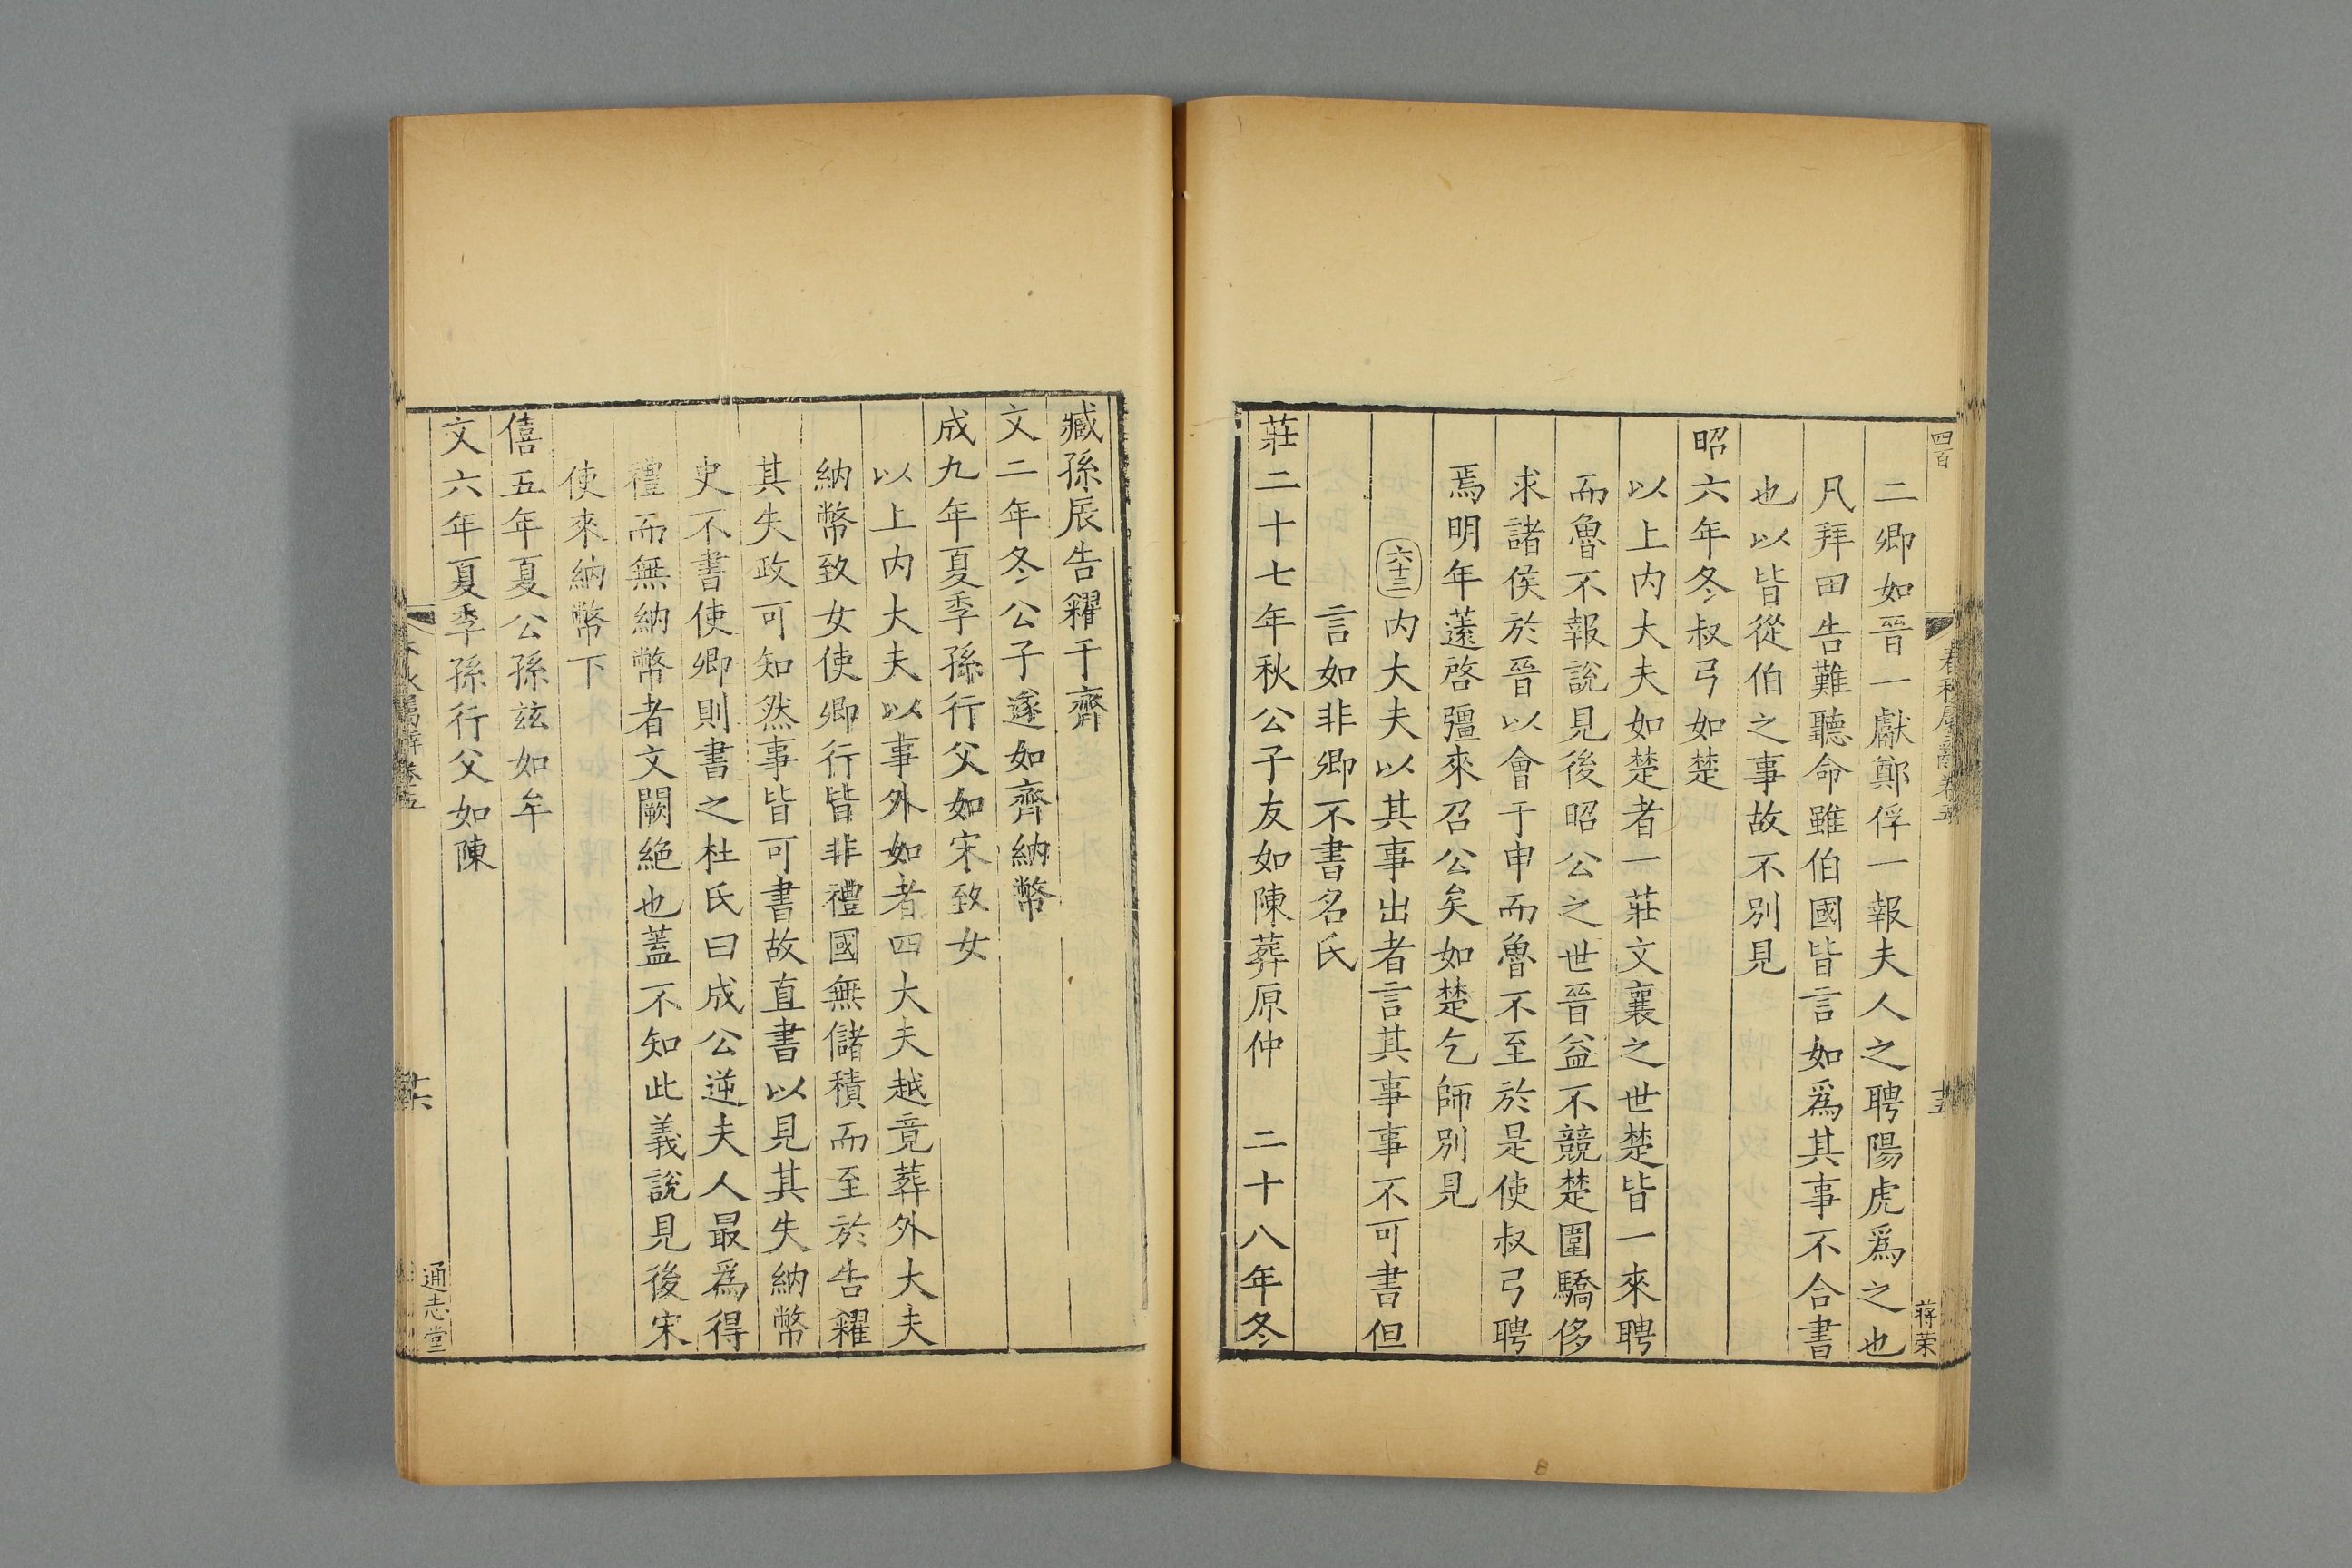 四百
春秋屬辭卷五
十五
蔣荣
二卿如晉一獻鄭俘一報夫人之聘陽虎爲之也
凡拜田告難聽命雖伯國皆言如爲其事不合書
也以皆從伯之事故不別見
昭六年冬叔弓如楚
以上内大夫如楚者一莊文襄之世楚皆一來聘
而魯不報說見後昭公之世晉益不競楚圍驕侈
求諸侯於晉以會于申而魯不至於是使叔弓聘
焉明年薳啓彊來召公矣如楚乞師別見
六十三内大夫以其事出者言其事事不可書但
言如非卿不書名氏
莊二十七年秋公子友如陳葬原仲　二十八年冬
臧孫辰告糴于齊
文二年冬公子遂如齊納幣
成九年夏季孫行父如宋致女
以上内大夫以事外如者四大夫越竟葬外大夫
納幣致女使卿行皆非禮國無儲積而至於告糴
其失政可知然事皆可書故直書以見其失納幣
史不書使卿則書之杜氏曰成公逆夫人最爲得
禮而無納幣者文闕絶也蓋不知此義說見後宋
使來納幣下
僖五年夏公孫兹如牟
文六年夏季孫行父如陳
春秋屬辭卷五
十六
通志堂